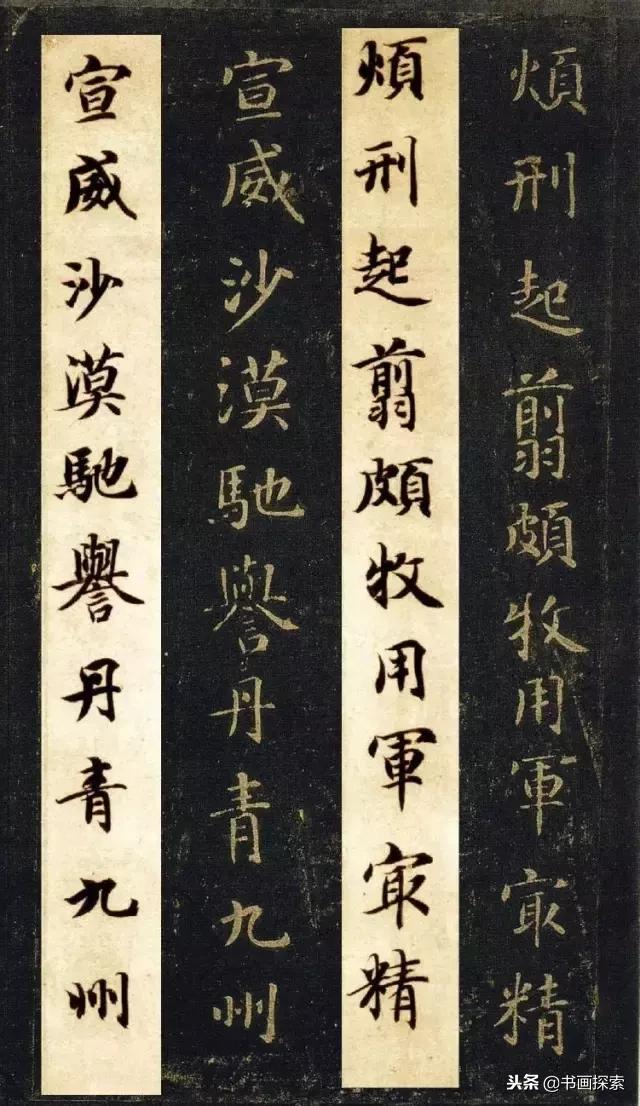 煩刑起翦頗牧用軍㝡精
煩刑起翦頗牧用軍㝡精
宣威沙漠馳譽丹青九州
宣威沙漠馳譽丹青九州
头条 @书画探索